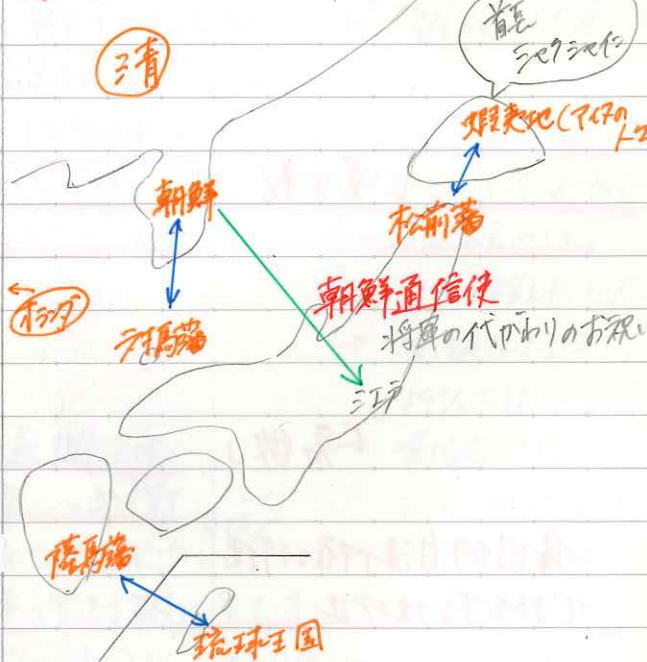 首長
シャクシャイン
清
蝦夷地(アイヌの
朝鮮
松前藩
オランダ
朝鮮通信使
対馬藩
将軍の代がわりのお祝い
江戸
薩摩藩
琉球王国